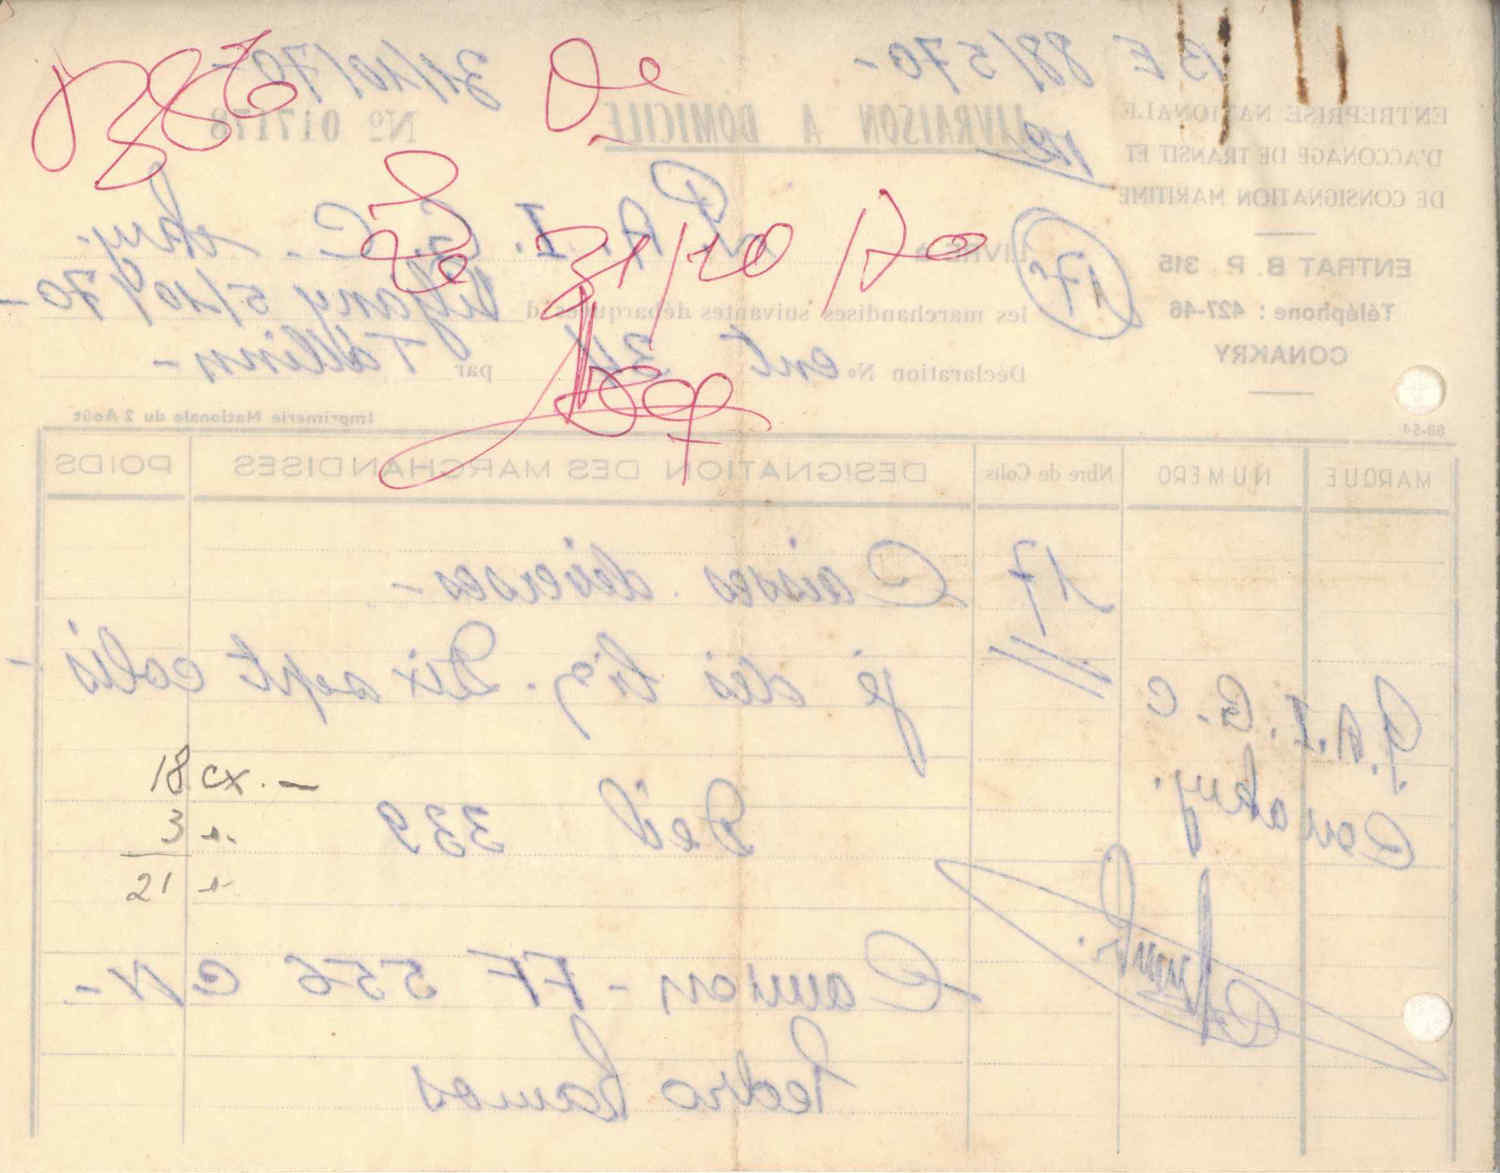 BE 88/570-
31/10/70-
ENTREPRISE NATIONALE
D'ACCONAGE DE TRANSIT ET
DE CONSIGNATION MARITIME
LIVRAISON A DOMICILE
Nº 017178
ENTRAT B. P. 315
Téléphone : 427-46
CONAKRY
17
LIVRÉ à P.A.I.G.C.
les marchandises suivantes débarquées d
5/10/70-
Déclaration No ent 34 par Tallinn-
31/10/70
68-54
Imprimerie Nationale du 2 Août
MARQUE NUMERO Nbre de Colis DESIGNATION DES MARCHANDISES POIDS
17 Caisses diverses-
je dis Dix sept colis-
P.A.I.G.C
Conakry.
Del 339
18 cx. -
3 "
21 "
Camion- FF 5556 GN-
Pedro Ramos